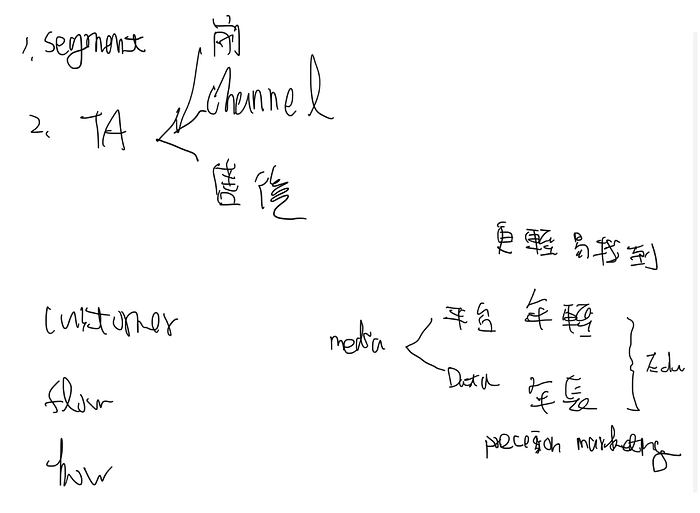 1. segment
前
channel
2. TA
售後
更輕易找到
customer
media
平台 年輕
Data 年長
Edu
flow
precision marketing
how